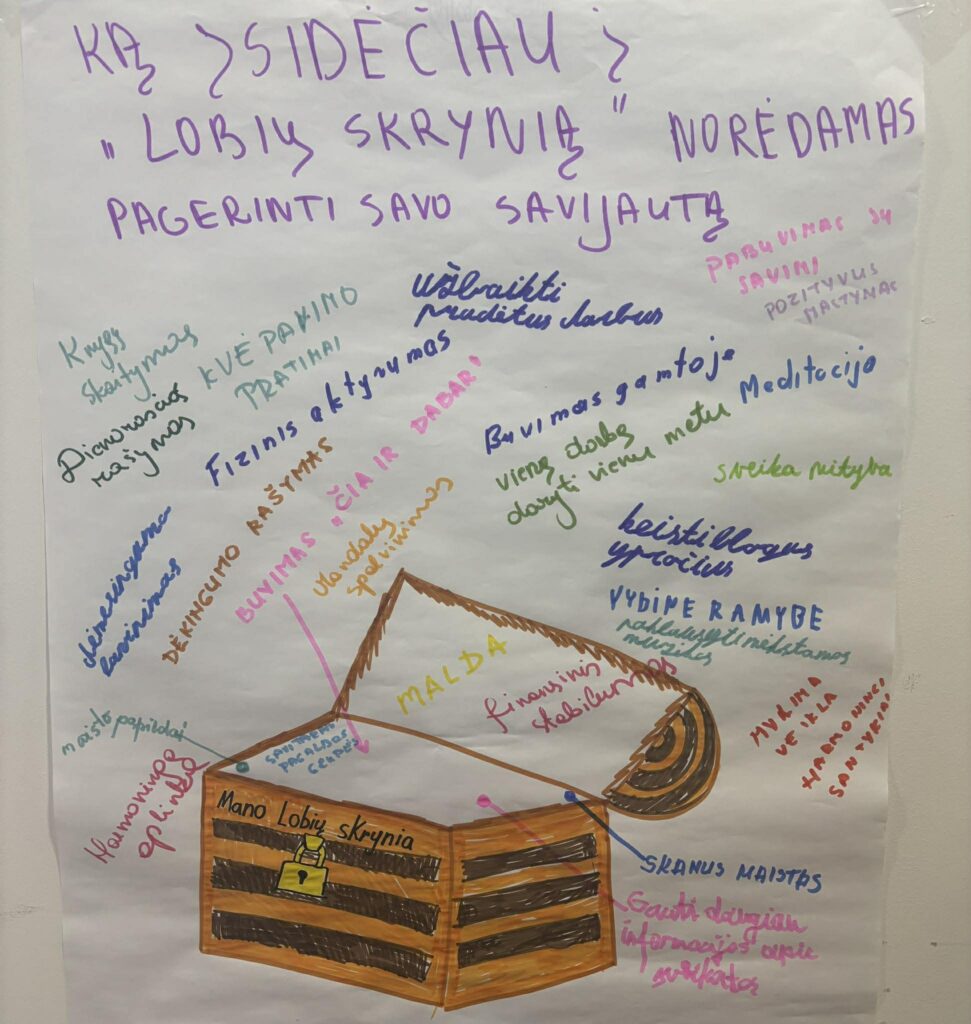 KĄ ĮSIDĖČIAU Į
„LOBIŲ SKRYNIĄ" NORĖDAMAS
PAGERINTI SAVO SAVIJAUTĄ
PABUVIMAS SU
SAVIMI
POZITYVUS
MĄSTYMAS
Užbaikti
pradėtus darbus
Knygų
skaitymas
KVĖPAVIMO
PRATIMAI
Dienoraščio
rašymas
Fizinis aktyvumas
Buvimas gamtoje
Meditacija
vieną darbą
daryti vienu metu
sveika mityba
DĖKINGUMO RAŠYMAS
BUVIMAS „ČIA IR DABAR"
Mandalų
spalvinimas
dėmesingumo
lavinimas
keisti blogus
įpročius
VYDINĖ RAMYBĖ
paklausyti mėkstamos
muzikos
MALDA
finansinis
stabilumas
MYLIMA
VEIKLA
HARMONINGI
SANTYKIAI
maisto papildai
SAVITARPIO
PAGALBOS
GRUPĖS
Harmoninga
aplinka
Mano Lobių skrynia
SKANUS MAISTAS
Gauti daugiau
informacijos apie
sveikatą